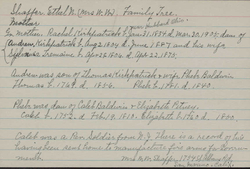 Shaffer Ethel N. (Mrs. W. W.) Family Tree.
Mother
Her mother Rachel Kirkpatrick b. Jan. 31, 1834 d. Mar. 20, 1925, dau of
Andrew Kirkpatrick b. Aug. 1804 d. June 1887 and his wife
Tremaine b. Apr. 26 1804 d. Apr. 22, 1875.
Andrew was son of Thomas Kirkpatrick & wife Phebe Baldwin
Thomas b. 1769 d. 1856. Phebe b. 1781 d. 1840
Phebe was dau. of Caleb Baldwin & Elizabeth
Caleb b. 1752 d. Feb. 19, 1819. Elizabeth b. 1760 d. 1800.
Caleb was a Rev. Soldier from N. J. There is a record of his
having been sent home to manufacture fire arms for
Mrs. W. W. Shaffer